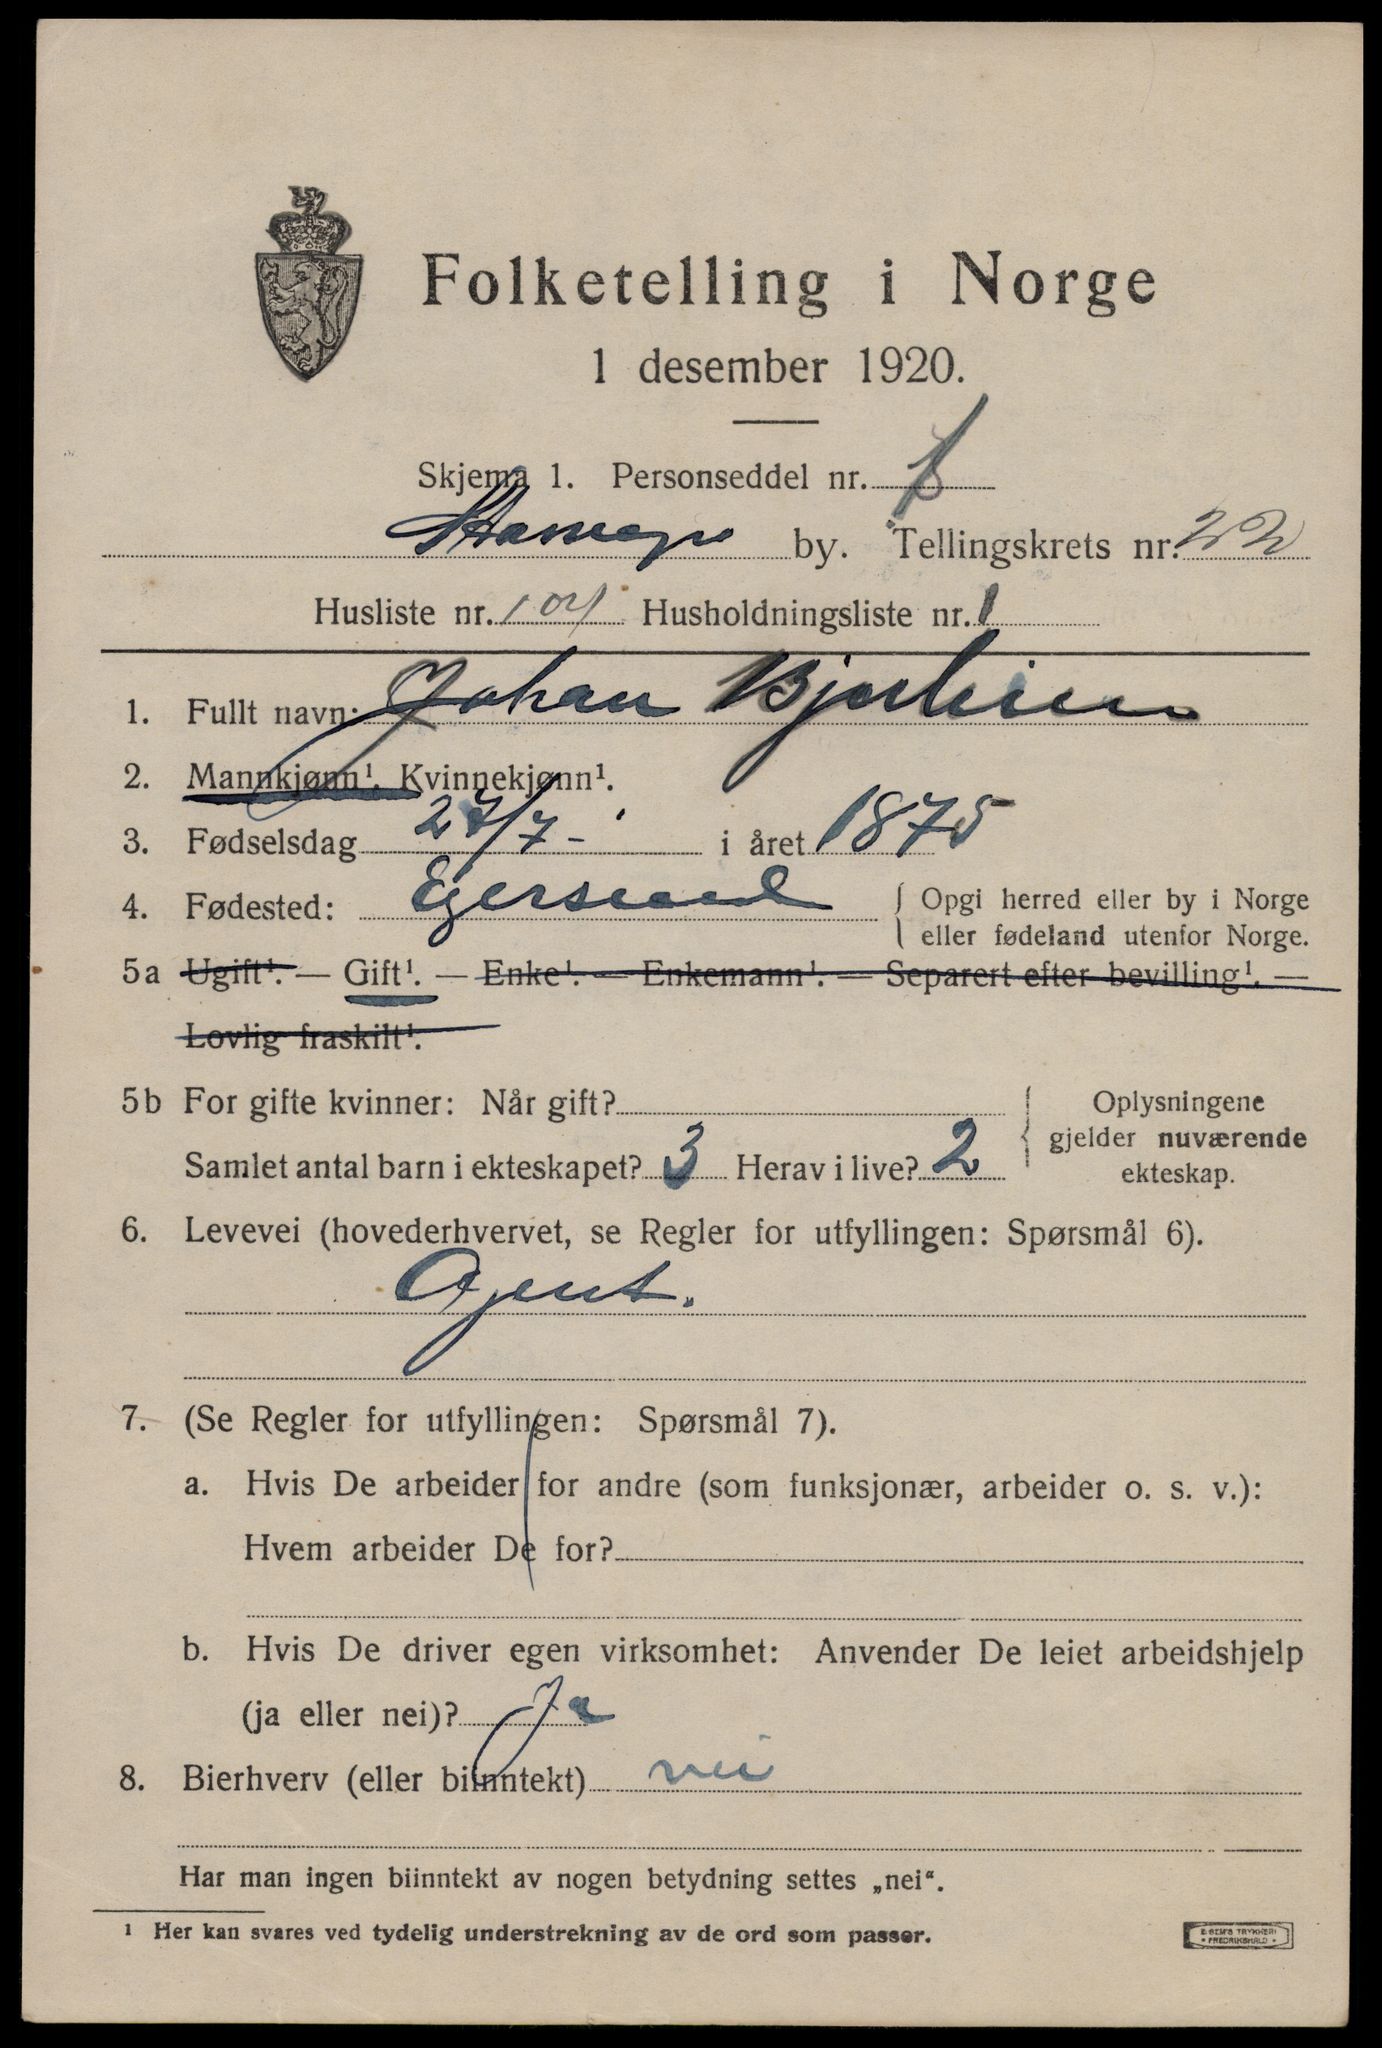 Folketelling i Norge
1 desember 1920.
Skjema 1. Personseddel nr. 1
Stavanger by. Tellingskrets nr. 22
Husliste nr. 104 Husholdningsliste nr. 1
1. Fullt navn: Johan
2. Mannkjønn¹. Kvinnekjønn¹.
3. Fødselsdag 27/7 - i året 1875
4. Fødested: Egersund { Opgi herred eller by i Norge
eller fødeland utenfor Norge.
5a Ugift¹. — Gift¹. — Enke¹. — Enkemann¹. — Separert efter bevilling¹. —
Lovlig fraskilt¹.
5b For gifte kvinner: Når gift? { Oplysningene
gjelder nuværende
Samlet antal barn i ekteskapet? 3 Herav i live? 2
ekteskap.
6. Levevei (hovederhvervet, se Regler for utfyllingen: Spørsmål 6).
Agent.
7. (Se Regler for utfyllingen: Spørsmål 7).
a. Hvis De arbeider for andre (som funksjonær, arbeider o. s. v.):
Hvem arbeider De for?
b. Hvis De driver egen virksomhet: Anvender De leiet arbeidshjelp
(ja eller nei)? Ja
8. Bierhverv (eller biinntekt) nei
Har man ingen biinntekt av nogen betydning settes „nei“.
¹ Her kan svares ved tydelig understrekning av de ord som passer.
E. SEM'S TRYKKERI
FREDRIKSHALD